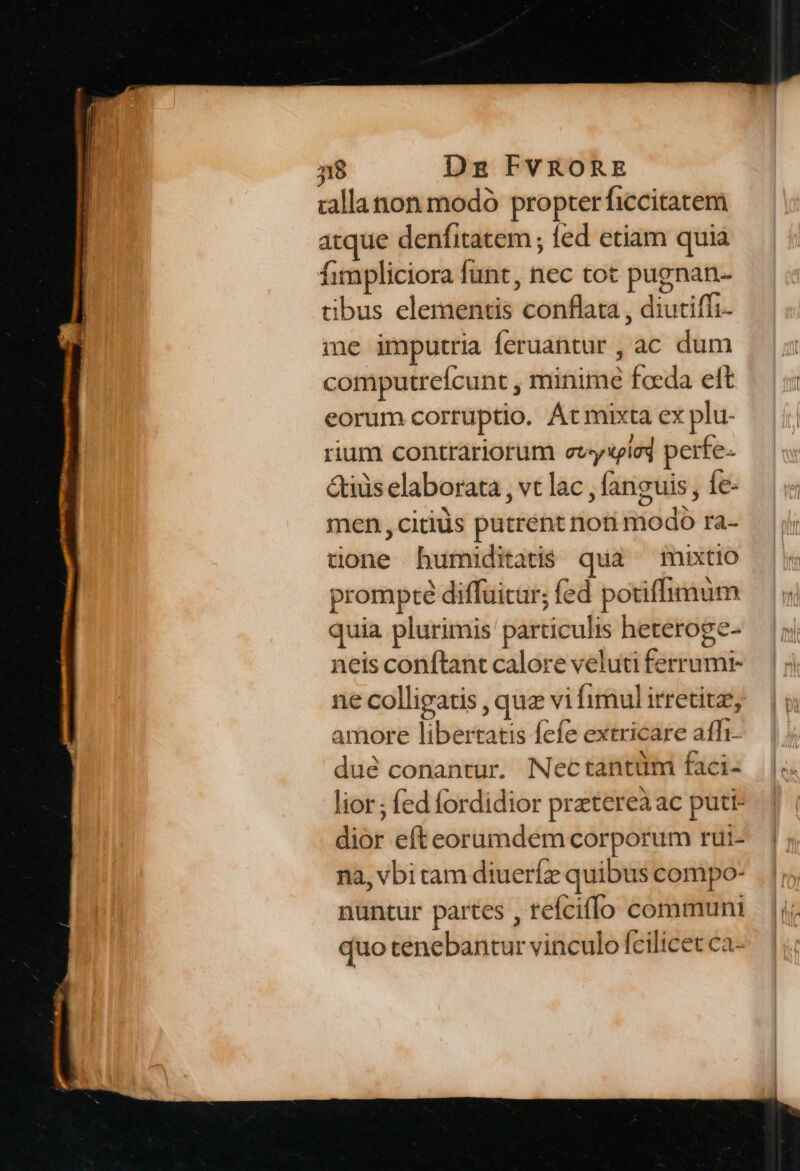 318 DE FVRORE
talla non modò propter ſiccitatem
atque denſitatem; ſed etiam quia
ſimpliciora ſunt, nec tot pugnan-
tibus elementis conflata, diutiſſi-
me imputria ſeruantur, ac dum
computreſcunt, minimè fœda eſt
eorum corruptio. At mixta ex plu-
rium contrariorum perfe-
ctiùs elaborata, vt lac, ſanguis, ſe-
men, citiùs putrent non modò ra-
tione humiditatis quâ mixtio
promptè diffluitur; ſed potiſſimùm
quia plurimis particulis heteroge-
neis conſtant calore veluti ferrumi-
ne colligatis, quæ vi ſimul irretitæ,
amore libertatis ſeſe extricare aſſi-
duè conantur. Nec tantùm faci-
lior; ſed ſordidior prætereà ac puti-
dior eſt eorumdem corporum rui-
na, vbi tam diuerſæ quibus compo-
nuntur partes, reſciſſo communi
quo tenebantur vinculo ſcilicet ca-